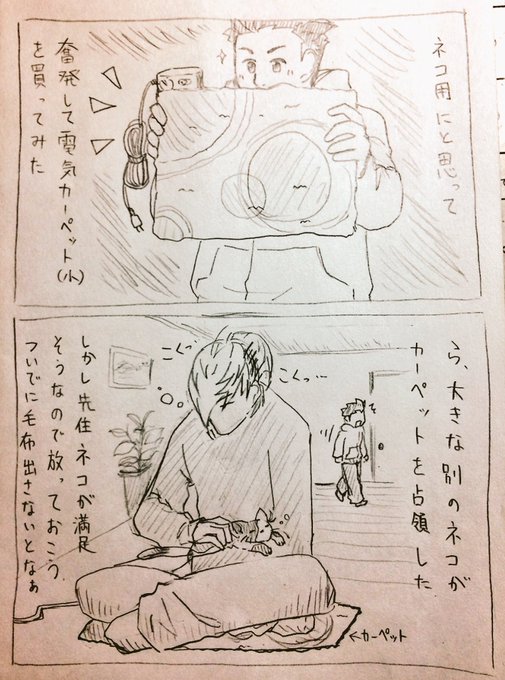 ネコ用にと思って
奮発して電気カーペット(小)
を買ってみた
ら、大きな別のネコが
カーペットを占領した
こくっ
こくっ…
しかし先住ネコが満足
そうなので放っておこう
ついでに毛布出さないとなぁ
←カーペット